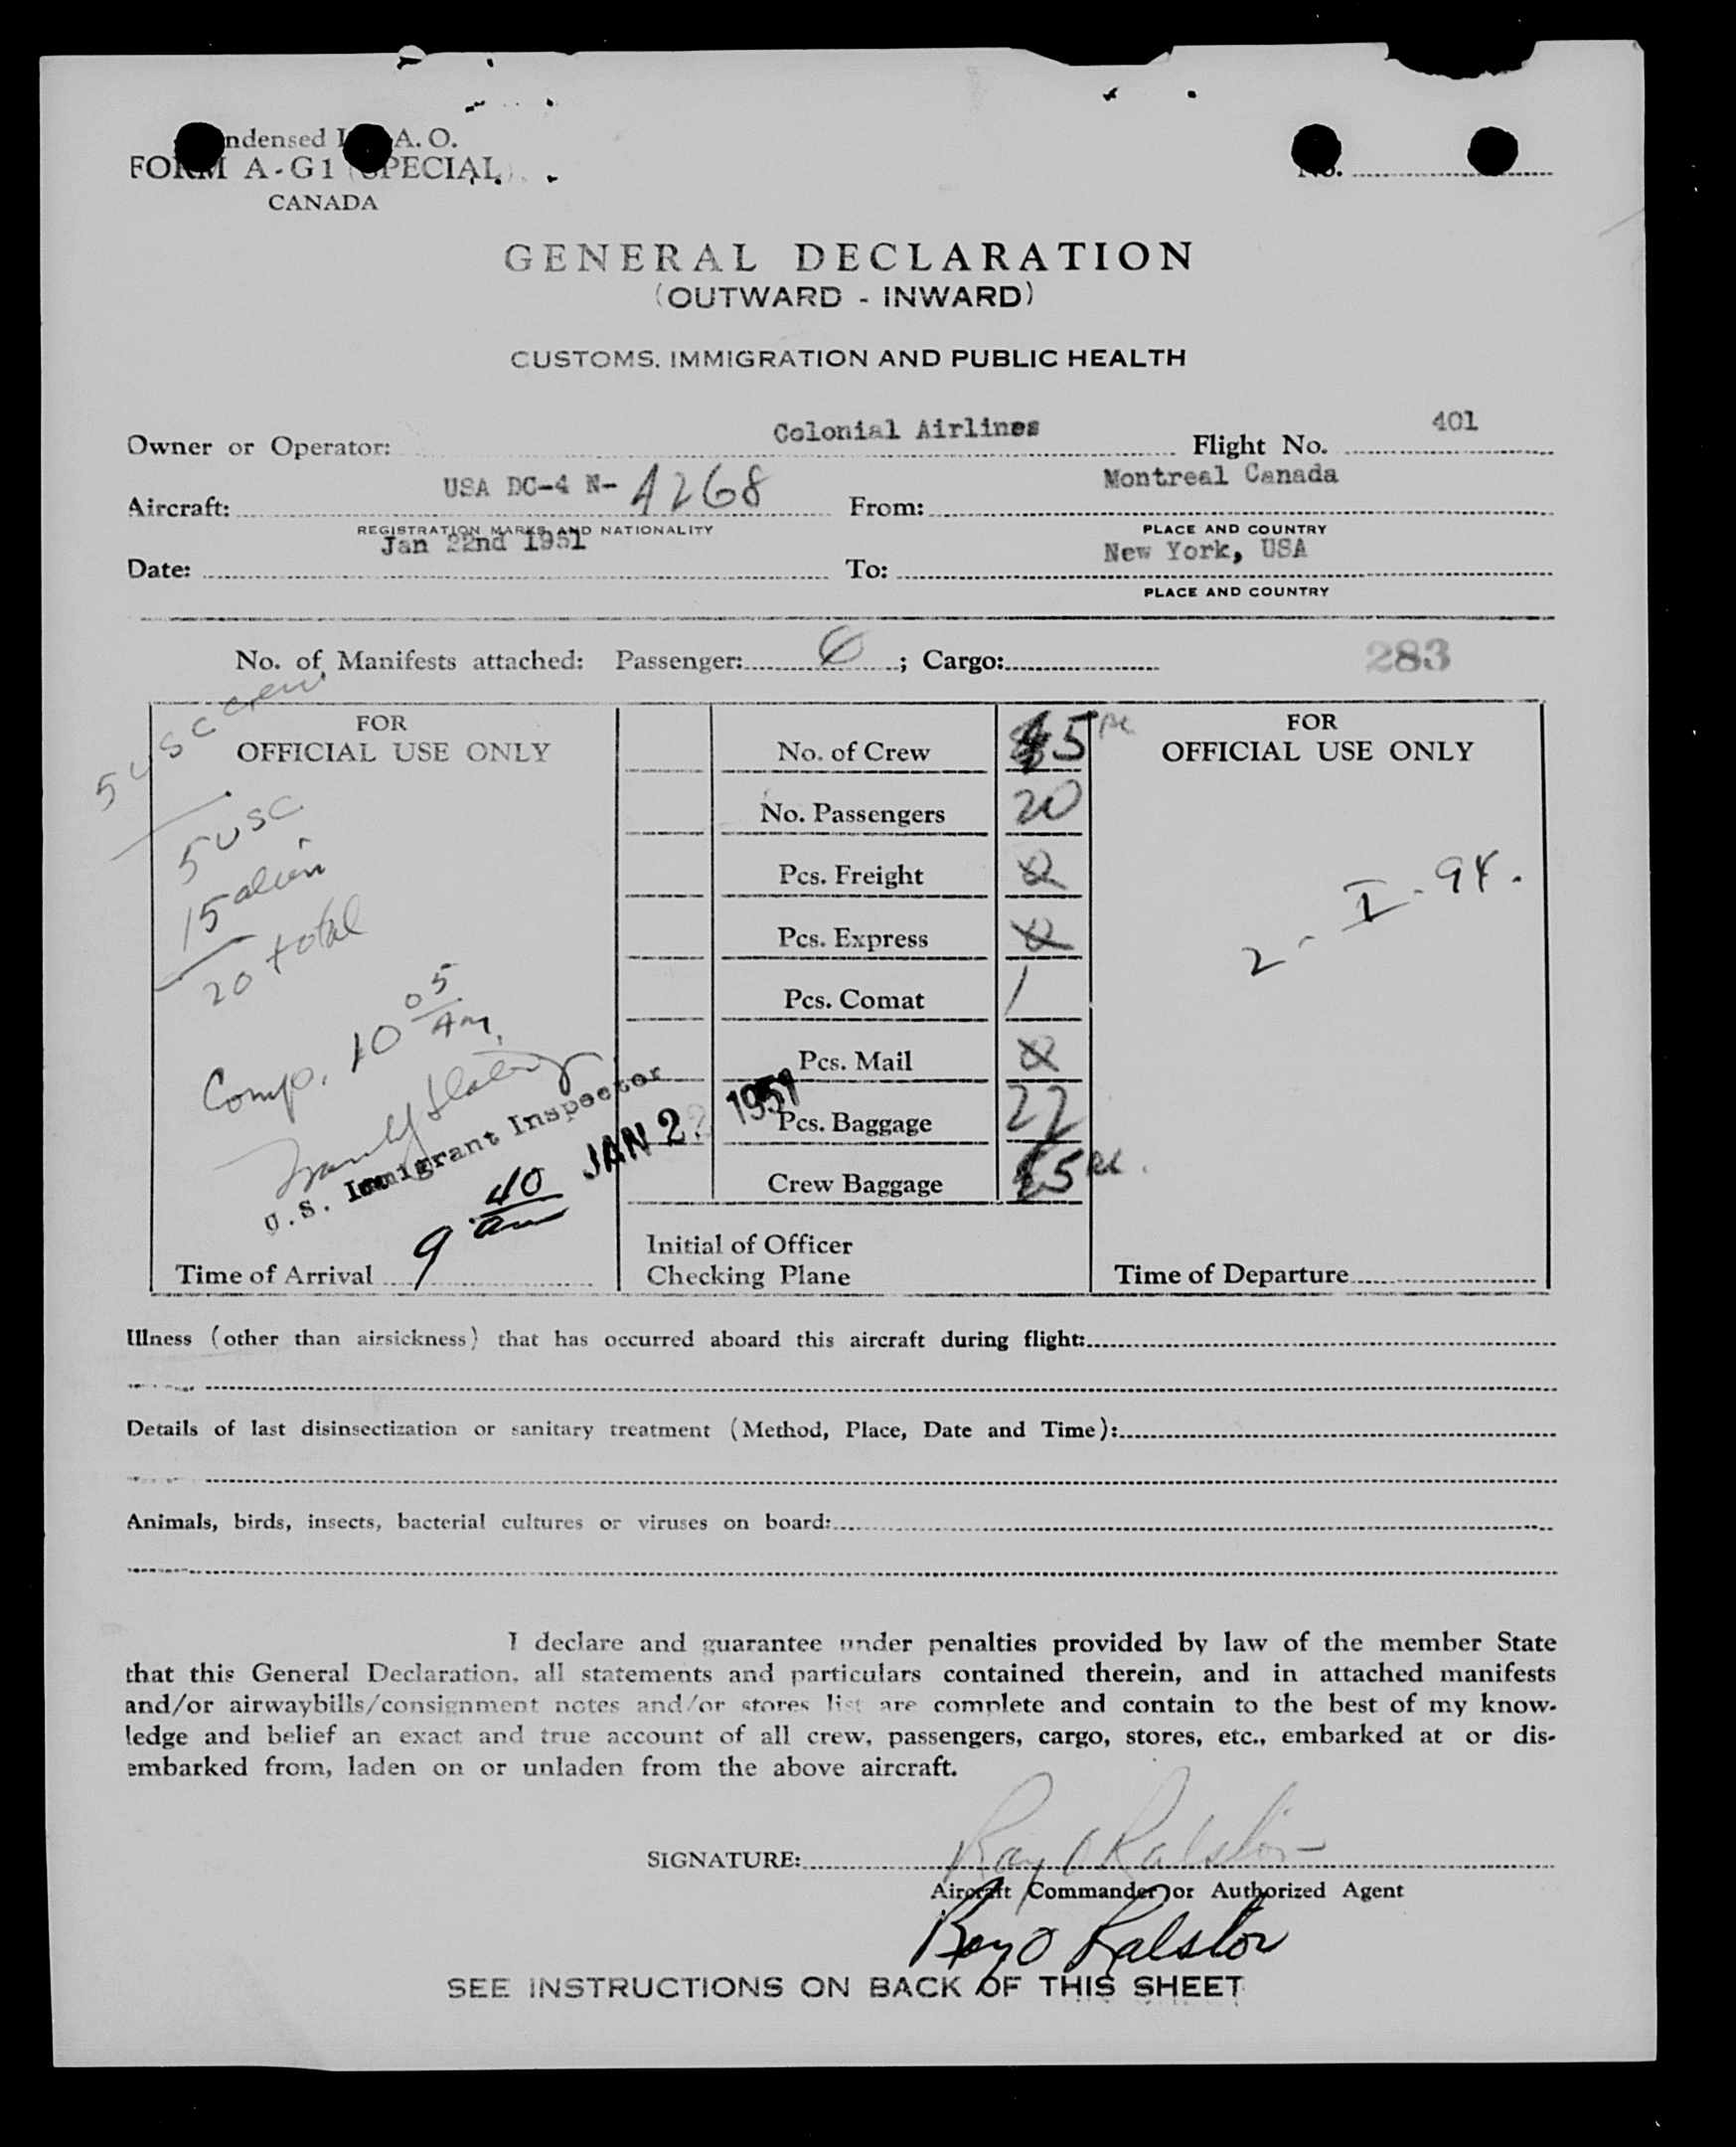 ndensed I A. O.
FORM A-G1 (SPECIAL)
CANADA
No.
GENERAL DECLARATION
(OUTWARD - INWARD)
CUSTOMS, IMMIGRATION AND PUBLIC HEALTH
Owner or Operator: Colonial Airlines Flight No. 401
Aircraft: USA DC-4 N- From: Montreal Canada
REGISTRATION MARKS AND NATIONALITY PLACE AND COUNTRY
Date: Jan 22nd 1951 To: New York, USA
PLACE AND COUNTRY
No. of Manifests attached: Passenger: ; Cargo: 283
5 USC crew
FOR
OFFICIAL USE ONLY
5 USC
15 alien
20 total
Comp. 10 05 AM
U.S. Immigrant Inspector
JAN 22 1951
Time of Arrival 9 40 am
No. of Crew 5
No. Passengers 20
Pcs. Freight
Pcs. Express
Pcs. Comat 1
Pcs. Mail
Pcs. Baggage 22
Crew Baggage 5
Initial of Officer
Checking Plane
FOR
OFFICIAL USE ONLY
2 - I - 94.
Time of Departure
Illness (other than airsickness) that has occurred aboard this aircraft during flight:
Details of last disinsectization or sanitary treatment (Method, Place, Date and Time):
Animals, birds, insects, bacterial cultures or viruses on board:
I declare and guarantee under penalties provided by law of the member State
that this General Declaration, all statements and particulars contained therein, and in attached manifests
and/or airwaybills/consignment notes and/or stores list are complete and contain to the best of my know-
ledge and belief an exact and true account of all crew, passengers, cargo, stores, etc., embarked at or dis-
embarked from, laden on or unladen from the above aircraft.
SIGNATURE: Ray O Ralston
Aircraft Commander or Authorized Agent
Ray O Ralston
SEE INSTRUCTIONS ON BACK OF THIS SHEET